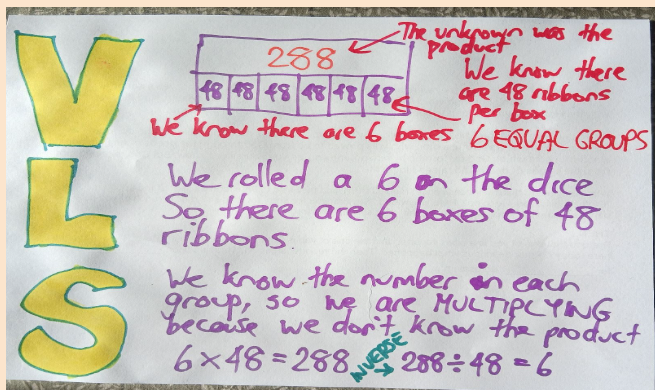 V
L
S
The unknown was the
product
288
48 48 48 48 48 48
We know there
are 48 ribbons
per box
We know there are 6 boxes
6 EQUAL GROUPS
We rolled a 6 on the dice
So there are 6 boxes of 48
ribbons.
We know the number in each
group, so we are MULTIPLYING
because we don't know the product
6 × 48 = 288
INVERSE
288 ÷ 48 = 6